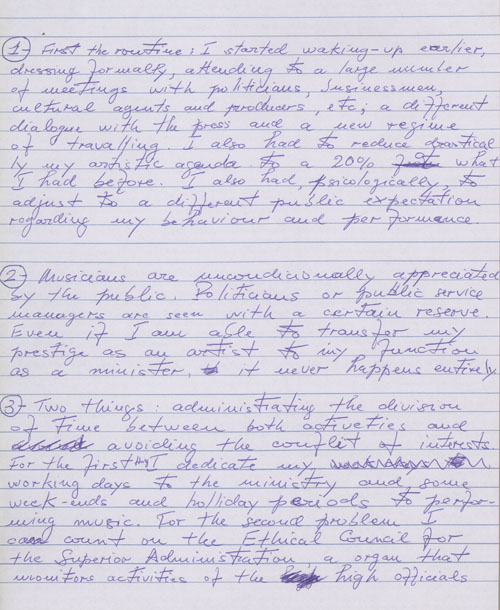 1- First the routine: I started waking-up earlier,
dressing formally, attending to a large number
of meetings with politicians, businessmen,
cultural agents and producers, etc; a different
dialogue with the press and a new regime
of travalling. I also had to reduce drastical
ly my artistic agenda to a 20% of what
I had before. I also had, psicologically, to
adjust to a different public expectation
regarding my behaviour and performance
2- Musicians are uncondicionally appreciated
by the public. Politicians or public service
managers are seen with a certain reserve.
Even if I am able to transfer my
prestige as an artist to my function
as a minister, it never happens entirely.
3- Two things: administrating the division
of time between both activeties and
avoiding the conflit of interests.
For the first thing I dedicate my
working days to the ministry and some
week-ends and holliday periods to perfor-
ming music. For the second problem I
can count on the Ethical Council for
the Superior Administration a organ that
monitors activities of the high officials